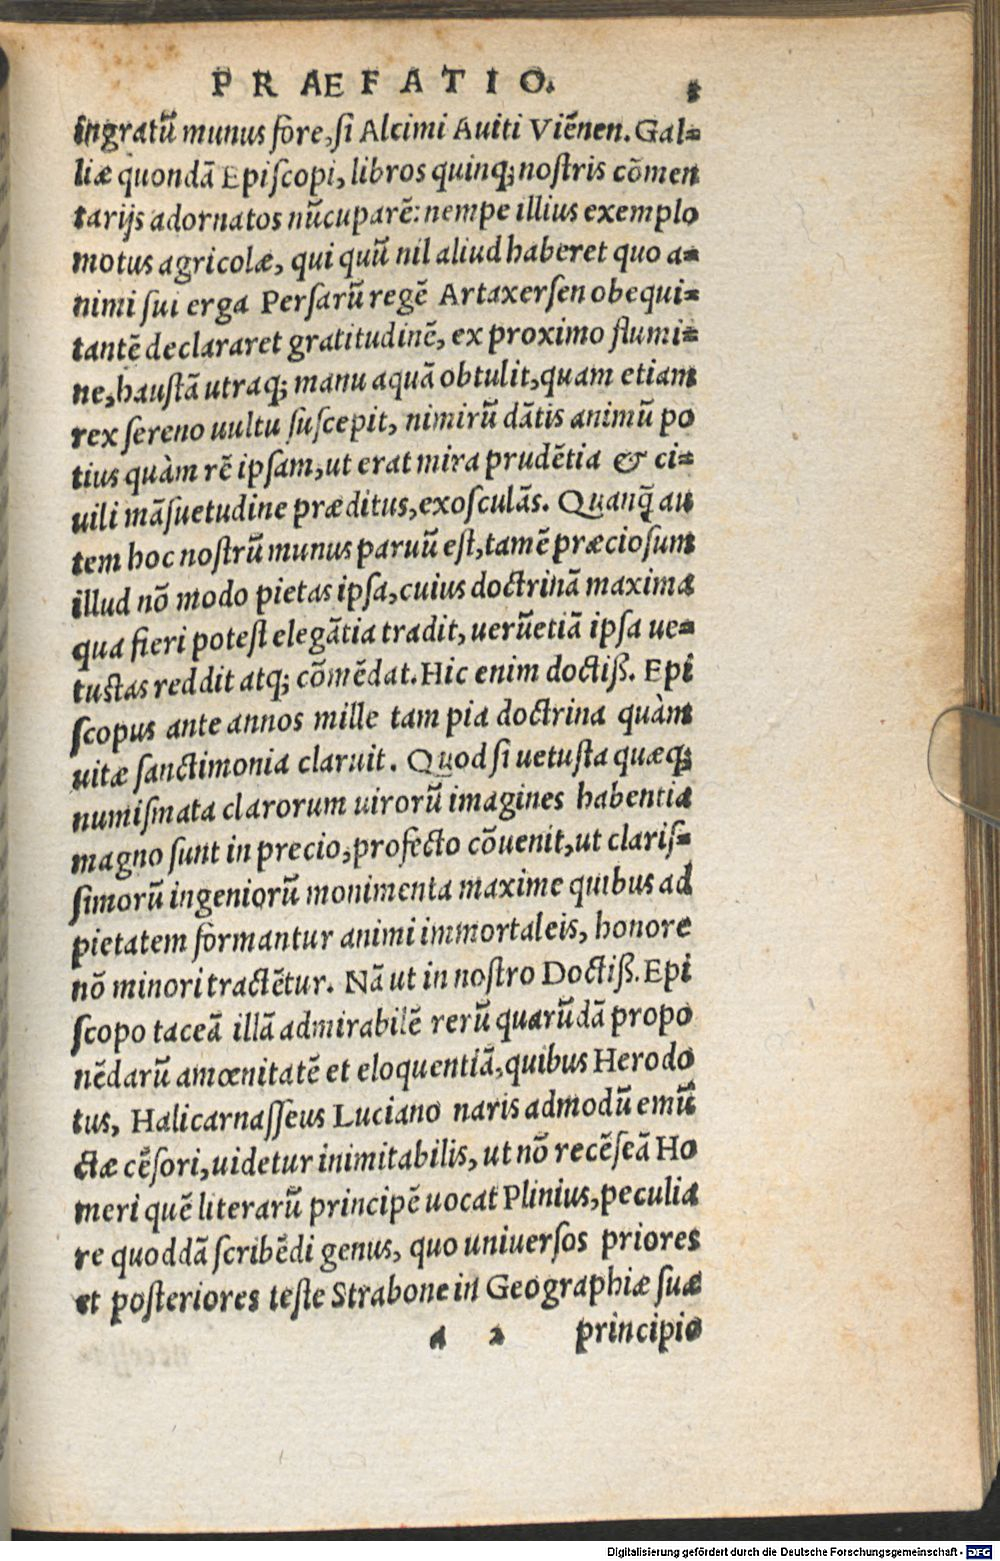 PRAEFATIO.
ingratū munus fore, si Alcimi Auiti Viēnen. Gal-
liæ quondā Episcopi, libros quinq; nostris cōmen
tarijs adornatos nūcuparē: nempe illius exemplo
motus agricolæ, qui quū nil aliud haberet quo a-
nimi sui erga Persarū regē Artaxersen obequi-
tantē declararet gratitudinē, ex proximo flumi-
ne, haustā utraq; manu aquā obtulit, quam etiam
rex sereno uultu suscepit, nimirū dātis animū po
tius quàm rē ipsam, ut erat mira prudētia & ci-
uili māsuetudine præditus, exosculās. Quanq̄ au
tem hoc nostrū munus paruū est, tamē præciosum
illud nō modo pietas ipsa, cuius doctrinā maxima
qua fieri potest elegātia tradit, uerūetiā ipsa ue-
tustas reddit atq; cōmēdat. Hic enim doctiß. Epi
scopus ante annos mille tam pia doctrina quàm
uitæ sanctimonia claruit. Quod si uetusta quæq;
numismata clarorum uirorū imagines habentia
magno sunt in precio, profecto cōuenit, ut claris-
simorū ingeniorū monimenta maxime quibus ad
pietatem formantur animi immortaleis, honore
nō minori tractētur. Nā ut in nostro Doctiß. Epi
scopo taceā illā admirabilē rerū quarūdā propo
nēdarū amœnitatē et eloquentiā, quibus Herodo
tus, Halicarnasseus Luciano naris admodū emū
ctæ cēsori, uidetur inimitabilis, ut nō recēseā Ho
meri quē literarū principē uocat Plinius, peculia
re quoddā scribēdi genus, quo uniuersos priores
et posteriores teste Strabone in Geographiæ suæ
a 2 principio
Digitalisierung gefördert durch die Deutsche Forschungsgemeinschaft - DFG